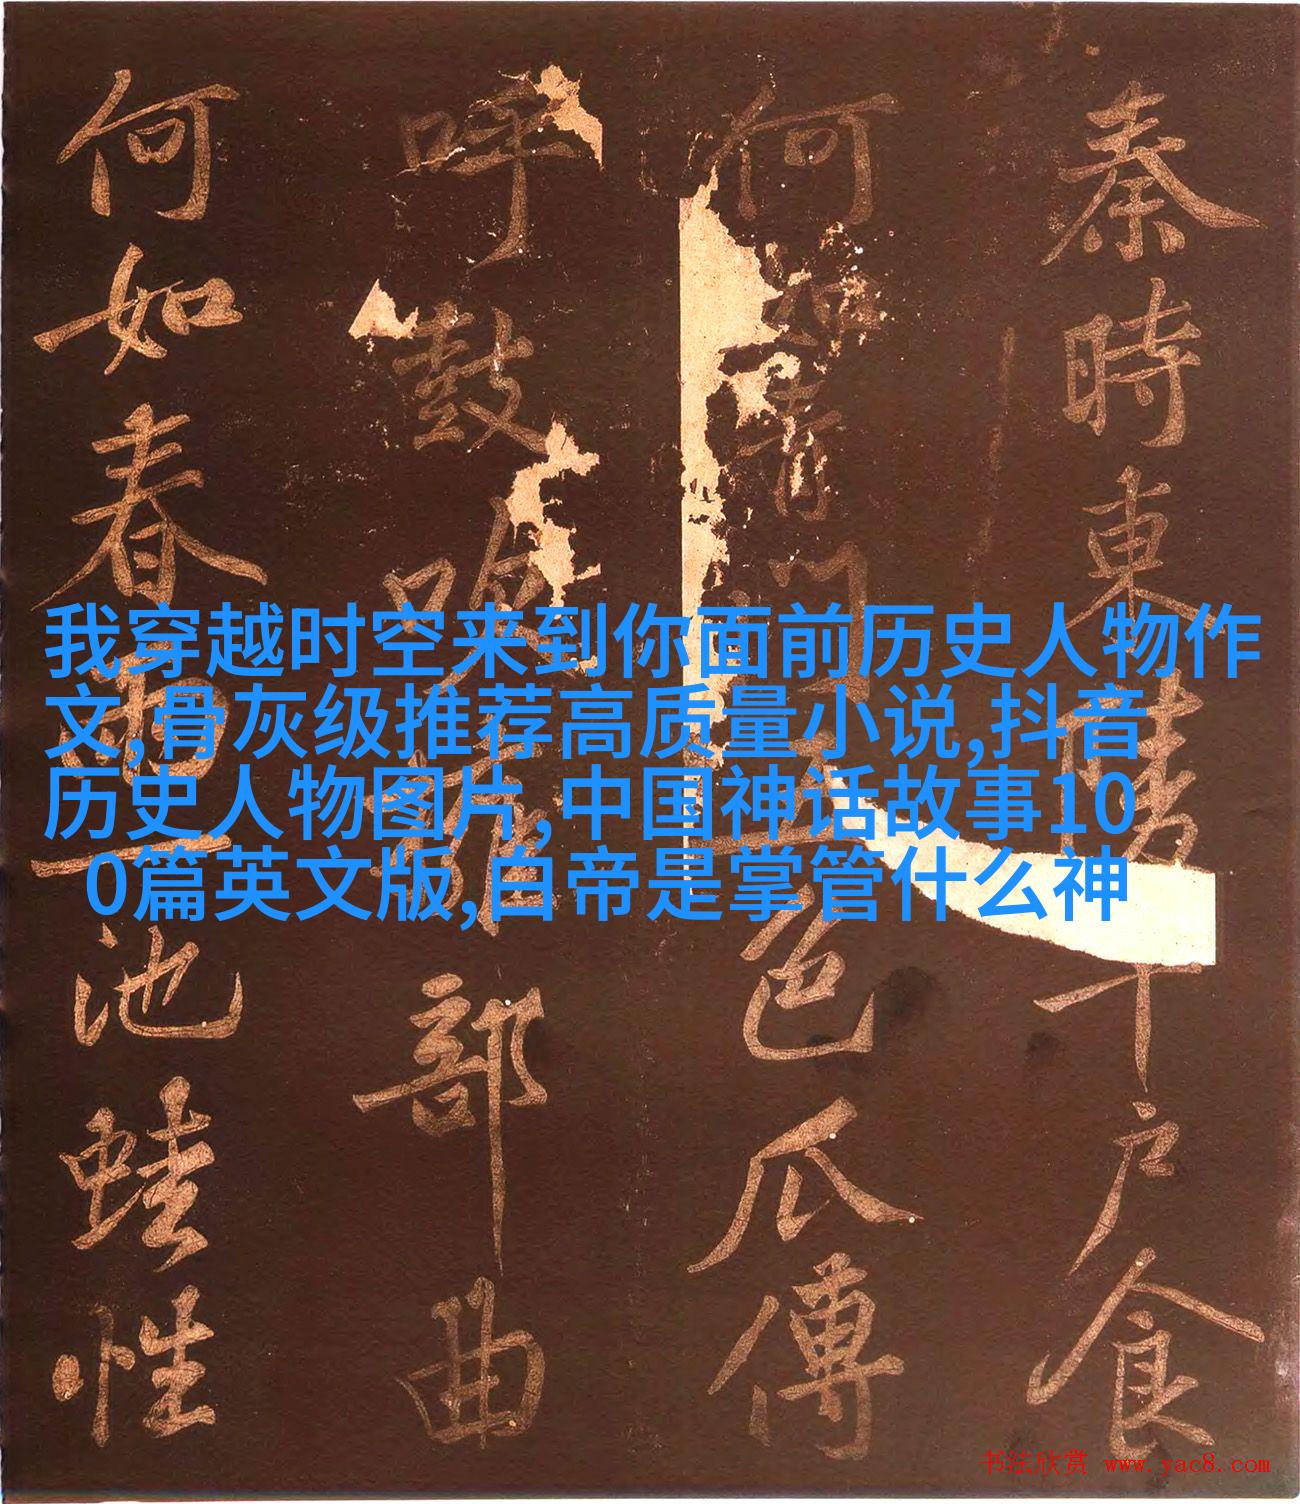 我穿越时空来到你面前历史人物作
文,骨灰级推荐高质量小说,抖音
历史人物图片,中国神话故事10
0篇英文版,白帝是掌管什么神
秦時東陵千户食
何如青門五色瓜傅
呼鼓吹部曲
何如春雨池蛙性
书法欣赏 www.yac8.com